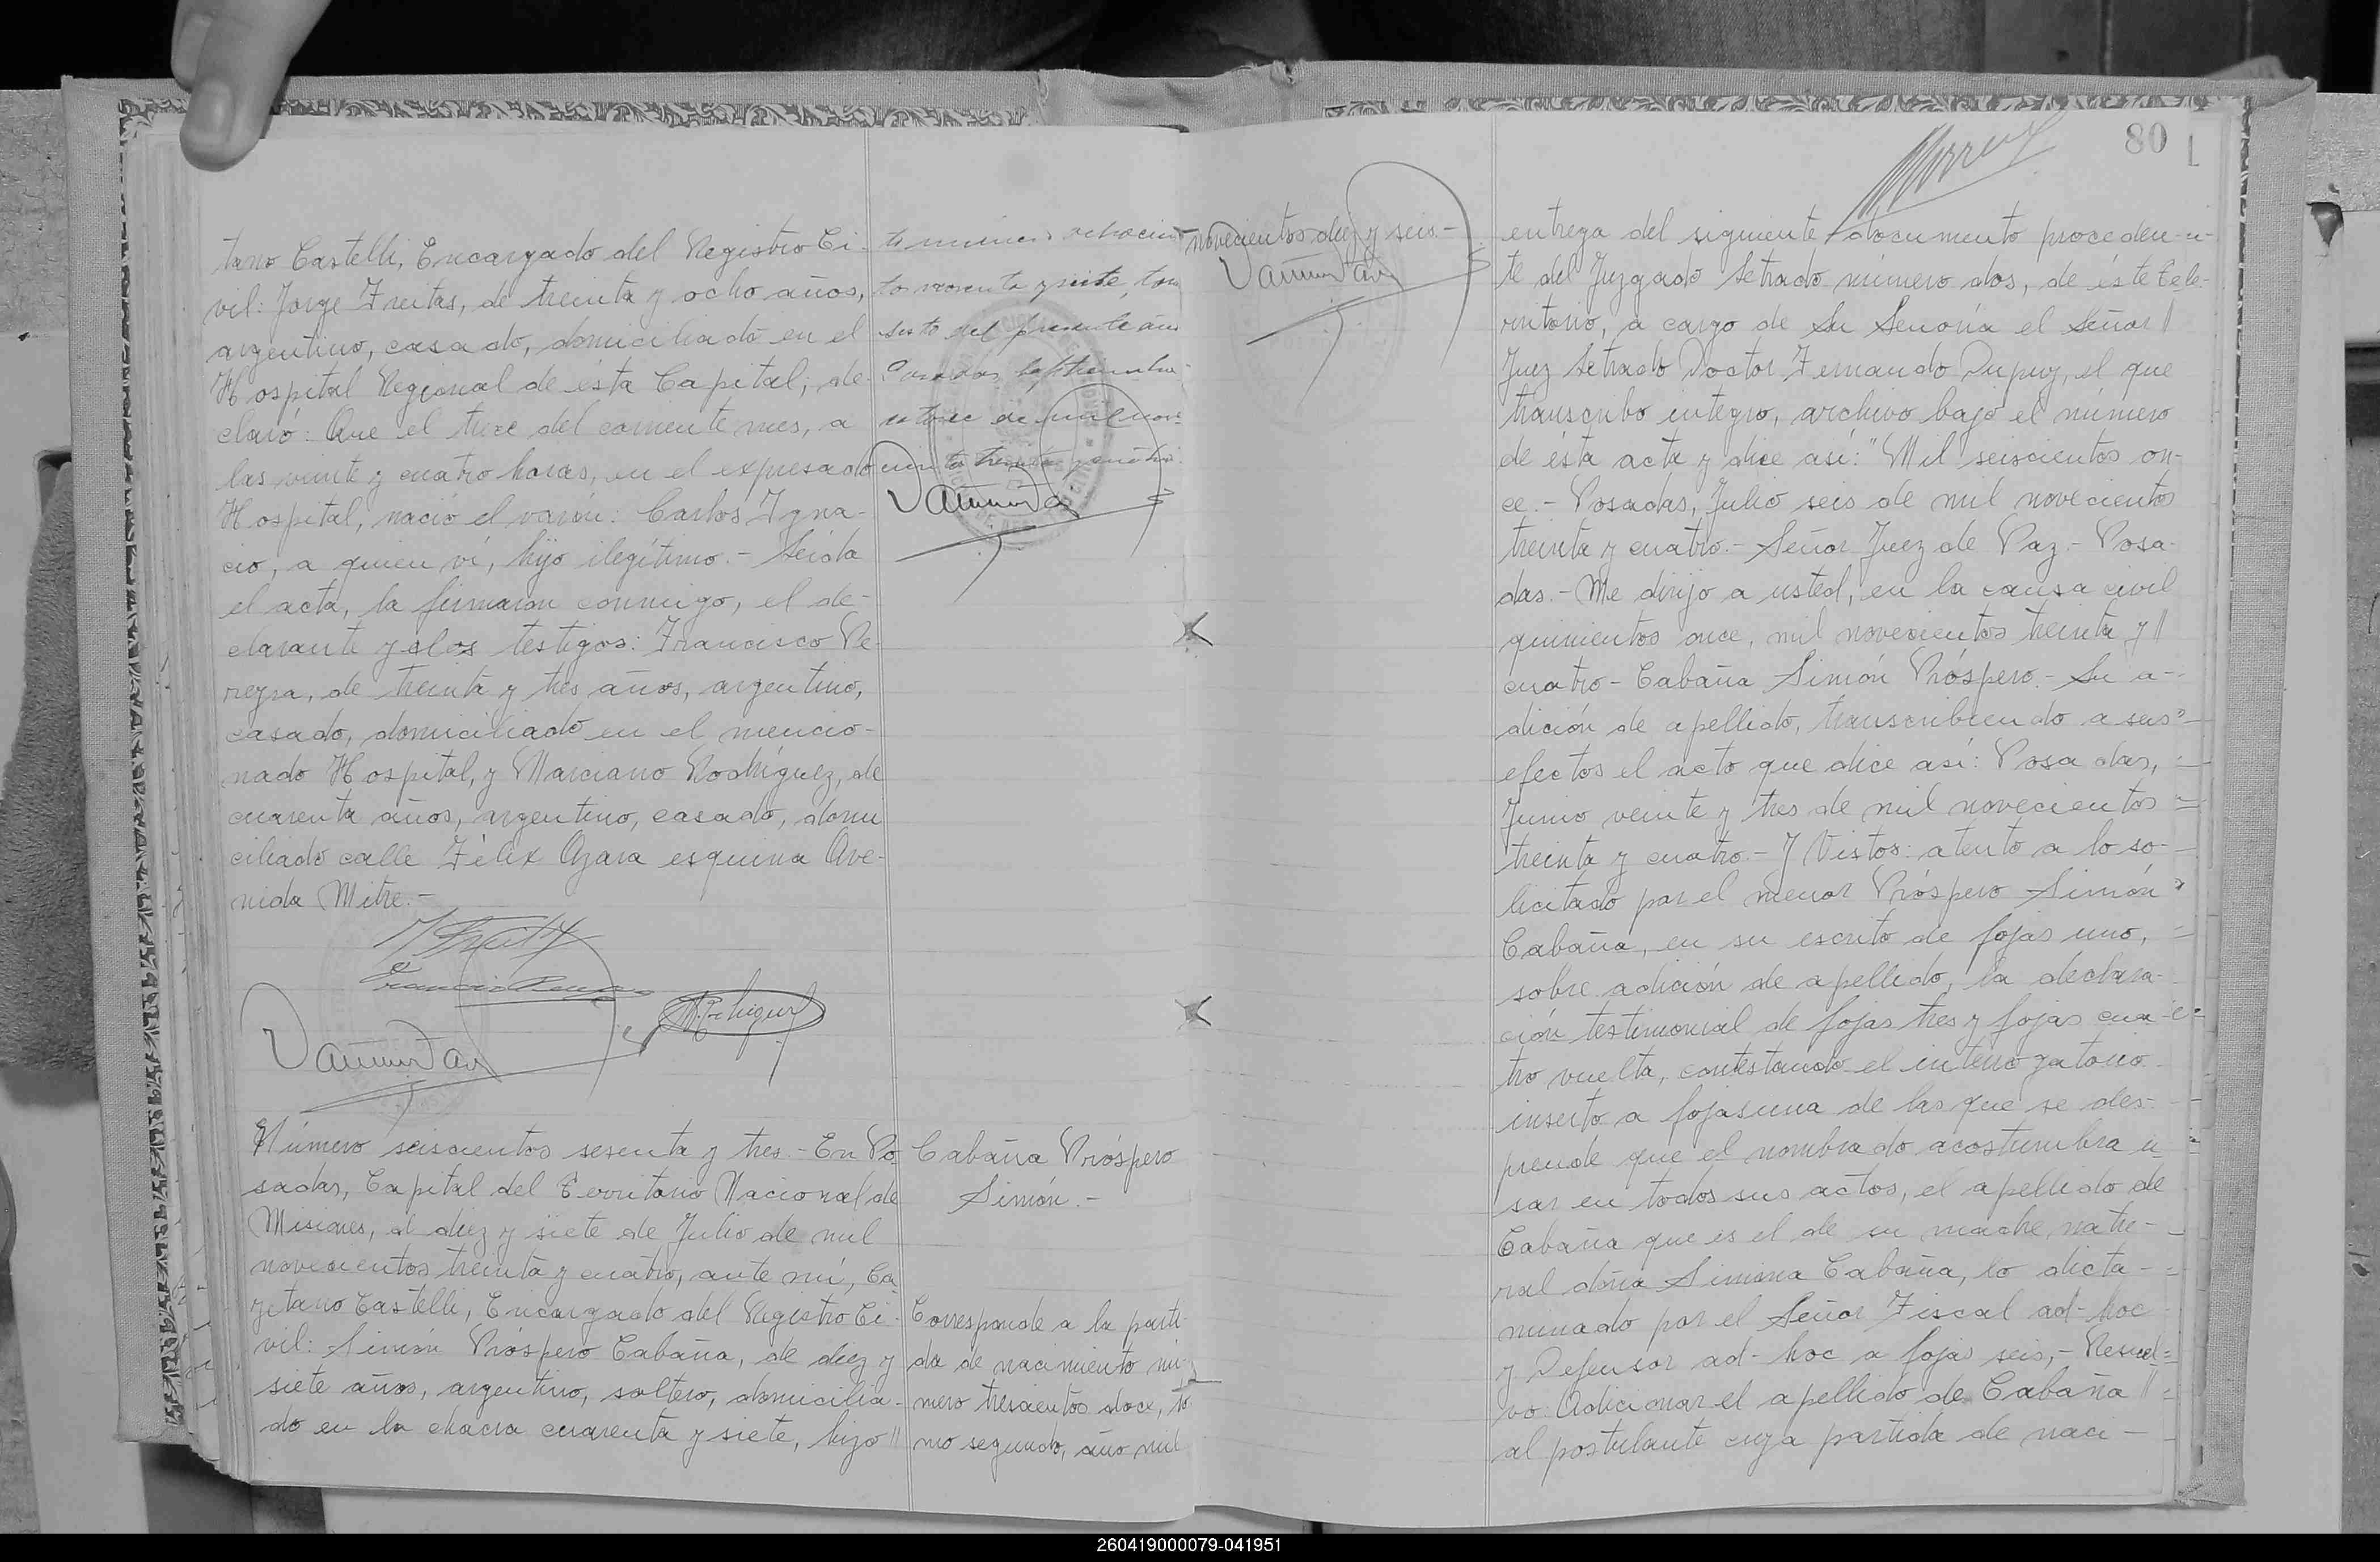 tano Castelli, Encargado del Registro Ci-
vil: Jorge Freitas, de treinta y ocho años,
argentino, casado, domiciliado en el
Hospital Regional de ésta Capital; de-
claró: Que el trece del corriente mes, a
las veinte y cuatro horas, en el expresado
Hospital, nació el varón: Carlos Igna-
cio, a quien ví, hijo ilegítimo.- Leída
el acta, la firmaron conmigo, el de-
clarante y los testigos: Francisco Pe-
reyra, de treinta y tres años, argentino,
casado, domiciliado en el mencio-
nado Hospital, y Marciano Rodríguez, de
cuarenta años, argentino, casado, domi
ciliado calle Félix Azara esquina Ave-
nida Mitre.-
número ochocien
to noventa y siete, tomo
sexto del presente año
Posadas, Septiembre
catorce de mil nove
cientos treinta y cuatro.
Número seiscientos sesenta y tres.- En Po
sadas, Capital del Territorio Nacional de
Misiones, a diez y siete de Julio de mil
novecientos treinta y cuatro, ante mí, Ca
yetano Castelli, Encargado del Registro Ci-
vil: Simón Próspero Cabaña, de diez y
siete años, argentino, soltero, domicilia-
do en la chacra cuarenta y siete, hijo //
Cabaña Próspero
Simón.-
Corresponde a la parti
da de nacimiento nú-
mero trescientos doce, to
mo segundo, año mil
novecientos diez y seis.-
80
entrega del siguiente documento proceden-
te del Juzgado Letrado número dos, de éste Te-
rritorio, a cargo de Su Señoría el Señor //
Juez Letrado Doctor Fernando Dupuy, el que
transcribo íntegro, archivo bajo el número
de ésta acta y dice así: "Mil seiscientos on-
ce.- Posadas, Julio seis de mil novecientos
treinta y cuatro.- Señor Juez de Paz.- Posa-
das.- Me dirijo a usted, en la causa civil
quinientos once, mil novecientos treinta y //
cuatro - Cabaña Simón Próspero.- Su a-
dición de apellido, transcribiendo a sus
efectos el acto que dice así: Posadas,
Junio veinte y tres de mil novecientos
treinta y cuatro.- Y Vistos: atento a lo so-
licitado por el menor Próspero Simón
Cabaña, en su escrito de fojas uno,
sobre adición de apellido, la declara-
ción testimonial de fojas tres y fojas cua-
tro vuelta, contestando el interrogatorio
inserto a fojas una de las que se des-
prende que el nombrado acostumbra u
sar en todos sus actos, el apellido de
Cabaña que es el de su madre natu-
ral doña Simona Cabaña, lo dicta-
minado por el Señor Fiscal ad-hoc
y Defensor ad-hoc a fojas seis,- Resuel-
vo: Adicionar el apellido de Cabaña //
al postulante cuya partida de naci-
260419000079-041951